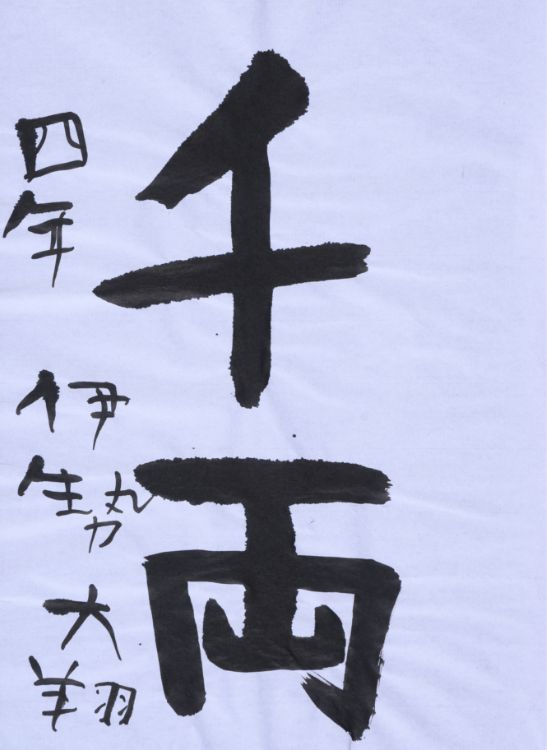 千両
四年 伊勢大翔